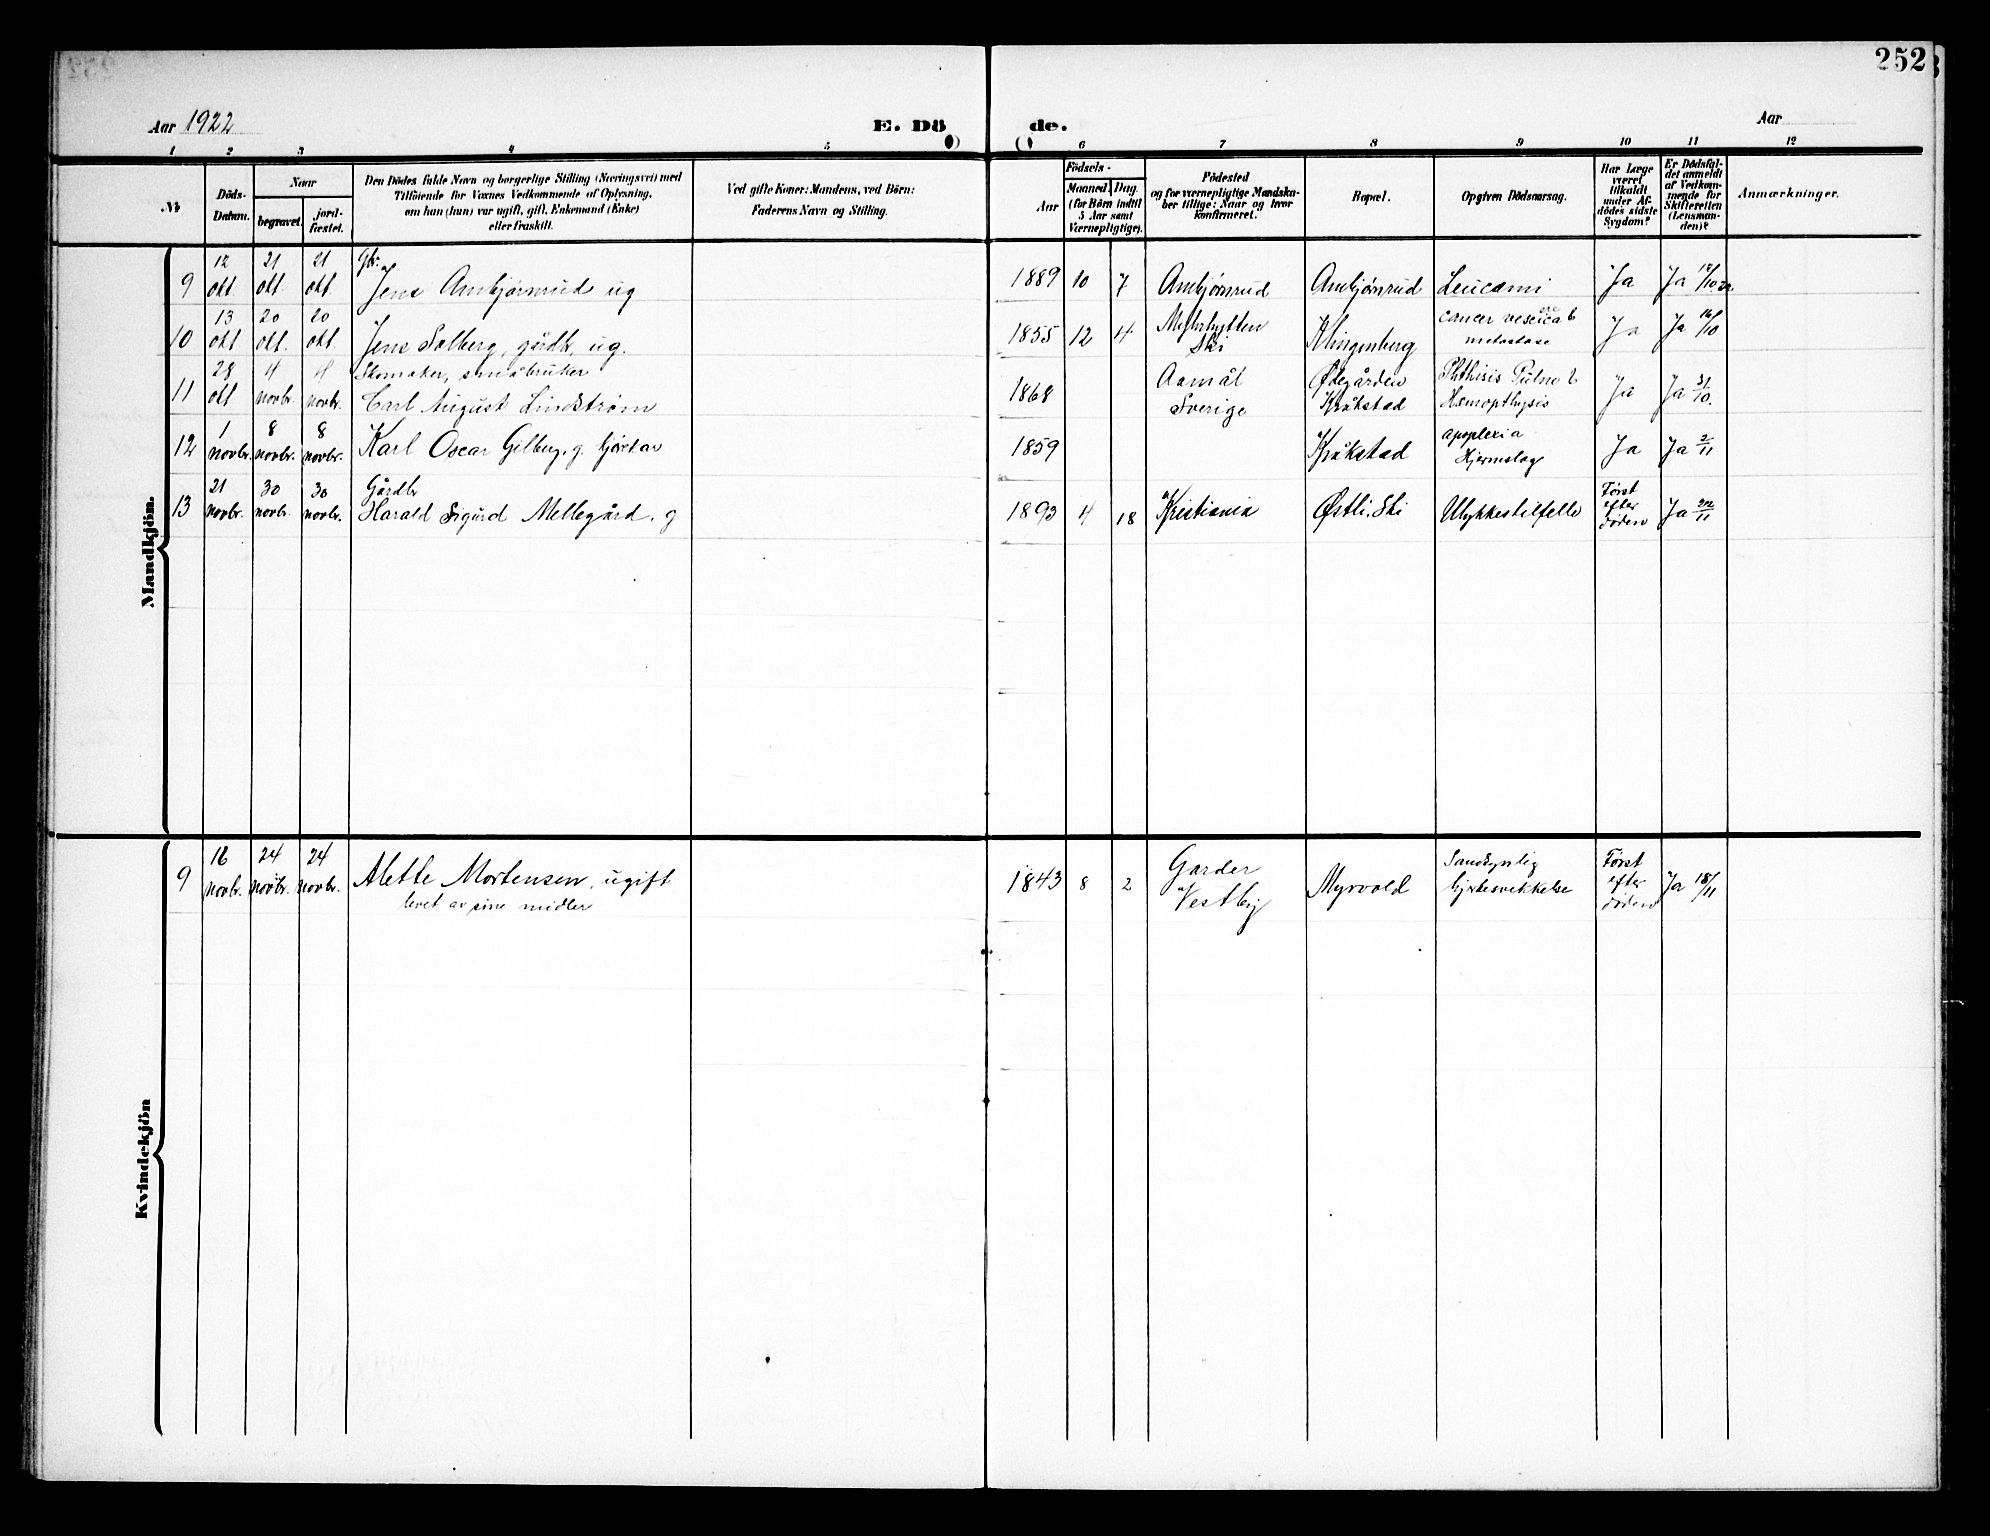 252
Aar 1922
E. Dö de.
Aar
1 2 3 4 5 6 7 8 9 10 11 12
Nr
Döds-Datum.
Naar
begravet. jordfæstet.
Den Dödes fulde Navn og borgerlige Stilling (Næringsvei) med
Tilföiende for Voxnes Vedkommende af Oplysning,
om han (hun) var ugift, gift, Enkemand (Enke)
eller fraskilt.
Ved gifte Koner: Mandens, ved Börn:
Faderens Navn og Stilling.
Födsels-
Aar
Maaned. Dag.
(for Börn indtil
5 Aar samt
Værnepligtige).
Födested
og for værnepligtige Mandskaber tillige: Naar og hvor
Konfirmeret.
Bopæl.
Opgiven Dödsaarsag.
Har Læge
været
tilkaldt
under Afdödes sidste
Sygdom?
Er Dödsfaldet anmeldt
af Vedkommende for
Skifteretten
(Lensmanden)?
Anmærkninger.
Mandkjön.
9 12 okt. 21 okt. 21 okt. Gbr. Jens Ambjørnrud ug 1889 10 7 Ambjørnrud Ambjørnrud Leucemi Ja Ja
10 13 okt 20 okt. 20 okt. Jens Solberg, gårdb. ug. 1855 12 4 Ski Klingenberg cancer metastase Ja Ja 16/10
11 28 okt 4 novbr. 4 novbr. Skomaker, småbruker
Carl August Lindstrøm 1868 Aamål Sverige Ødegården Kråkstad Phthisis Pulm Hæmopthysis Ja Ja 31/10.
12 1 novbr. 8 novbr. 8 novbr. Karl Oscar Gilberg, g. 1859 Kråkstad apoplexia Hjerneslag Ja Ja 2/11
13 21 novbr. 30 novbr. 30 novbr. Gårdbr
Harald Sigurd Mellegård, g 1893 4 18 Kristiania Østli, Ski Ulykkestilfelle Først efter døden Ja 22/11
Kvindekjön
9 16 novbr. 24 novbr. 24 novbr. Alette Mortensen, ugift
levet av sine midler 1843 8 2 Garder Vestby Myrvold Sandsynlig hjertesvekkelse Først efter døden Ja 18/11